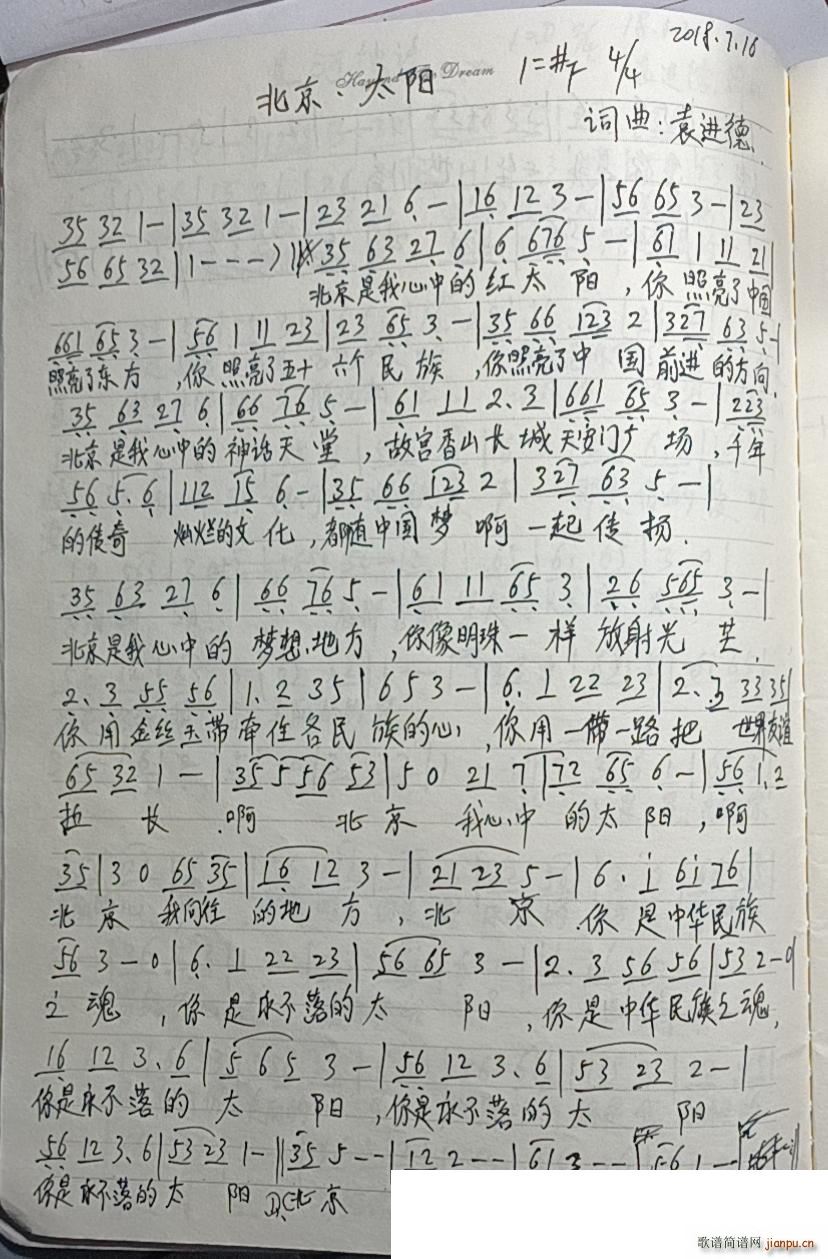 2018.7.16
北京·太阳 1=#F 4/4
词曲:袁进德
35 32 1-|35 32 1-|23 21 6-|16 12 3-|56 65 3-|23
56 65 32|1---)| 35 63 27 6|6 676 5-|61 1 11 21|
北京是我心中的红太阳,你照亮了中国
661 65 3-|56 1 11 23|23 65 3-|35 66 123 2|327 63 5-|
照亮了东方,你照亮了五十六个民族,你照亮了中国前进的方向,
35 63 27 6|66 76 5-|61 11 2.3|661 65 3-|223
北京是我心中的神话天堂,故宫香山长城天安门广场,千年
56 5.6|112 15 6-|35 66 123 2|327 63 5-|
的传奇 灿烂的文化,都随中国梦啊一起传扬.
35 63 27 6|66 76 5-|61 11 65 3|26 565 3-|
北京是我心中的梦想地方,你像明珠一样放射光芒.
2.3 55 56|1.2 35|6 5 3-|6.1 22 23|2.3 33 35|
你用金丝玉带牵住各民族的心,你用一带一路把 世界友谊
65 32 1-|35 5 56 53|5 0 21 7|72 65 6-|56 1.2
拉长.啊 北京 我心中的太阳,啊
35|3 0 65 35|16 12 3-|21 23 5-|6. i 6i 76|
北京 我向往的地方,北京.你是中华民族
56 3-0|6.1 22 23|56 65 3-|2.3 56 56|53 2-0|
之魂,你是永不落的太阳,你是中华民族之魂,
16 12 3.6|5 6 5 3-|56 12 3.6|53 23 2-|
你是永不落的太阳,你是永不落的太阳
56 12 3.6|53 23 1-||35 5--|12 2--|61 3--|
你是永不落的太阳 D.C北京
歌谱简谱网
jianpu.cn